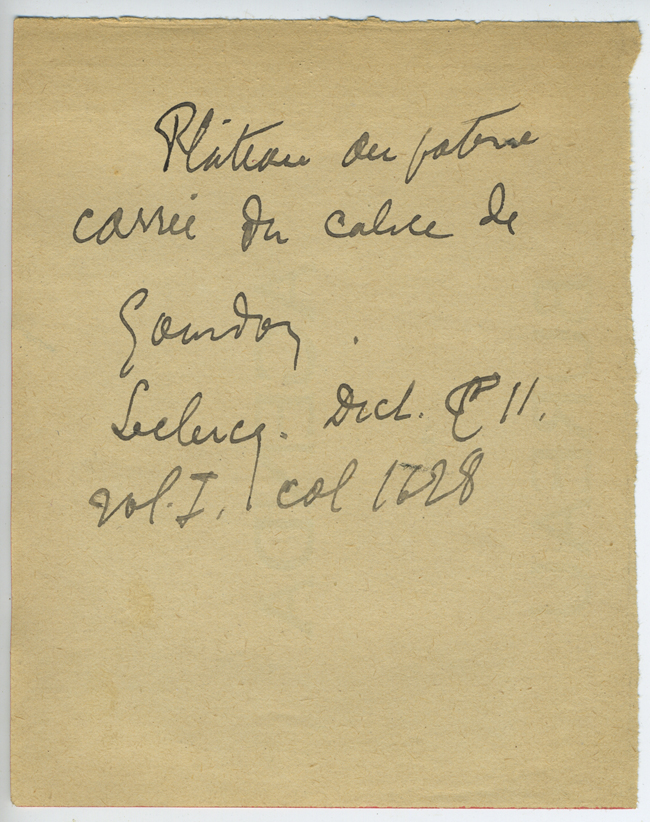 Plateau ou patene
carrée du calice de
Gourdon.
Leclercq. Dict. 11.
vol. I, col 1728